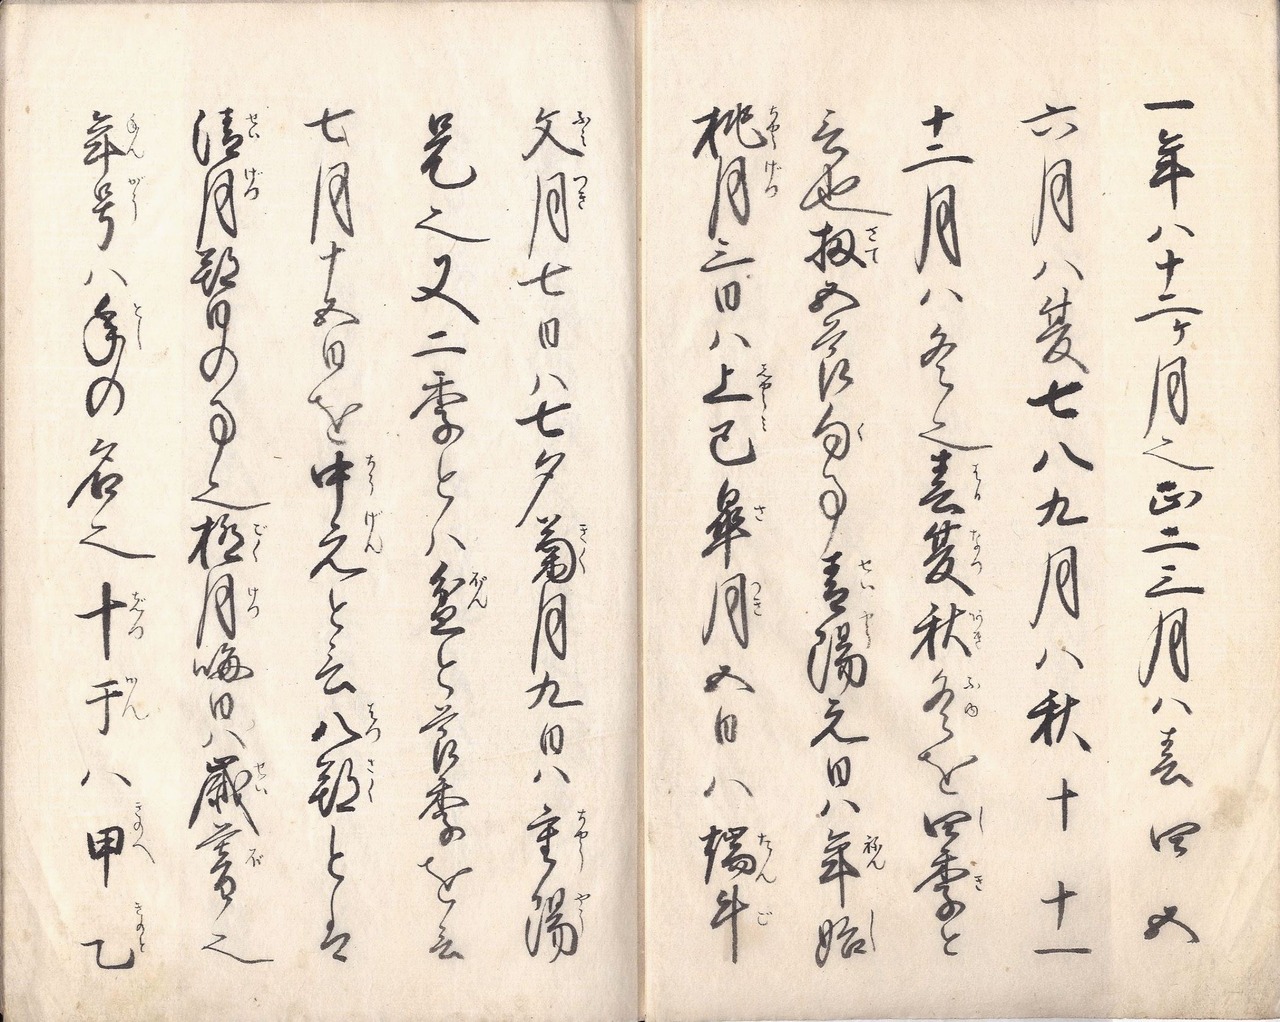 一年ハ十二ケ月也正二三月ハ春四五
六月ハ夏七八九月ハ秋十十一
十二月ハ冬也春夏秋冬を四季と
云也扨五節句の事青陽元日ハ年始
桃月三日ハ上巳皐月五日ハ端午
文月七日ハ七夕菊月九日ハ重陽
是也又二季とハ盆と節季を云
七月十五日を中元と云八朔とハ
清月朔日の事也極月晦日ハ歳暮也
年号ハ年の名也十干ハ甲乙